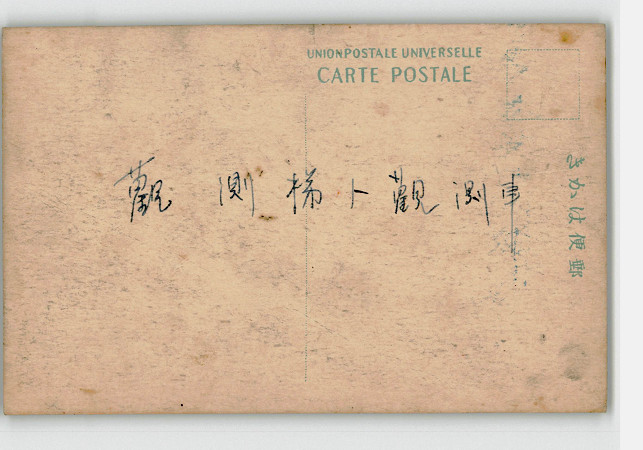 UNION POSTALE UNIVERSELLE
CARTE POSTALE
觀測梯ト觀測車
きかは便郵